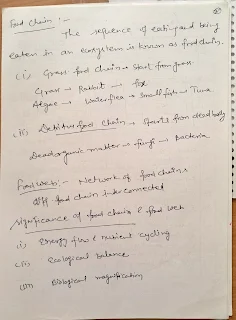 Food Chain :-
The sequence of eating and being
eaten in an ecosystem is known as food chain.
(i) Grass food chain - start from grass.
Grass → Rabbit → fox
Algae → Waterflea → Small fish → Tuna
(ii) Detritus food chain - starts from dead body
Dead organic matter → fungi → Bacteria
Food Web :- Network of food chains
diff. food chain interconnected
Significance of food chain & food web
(i) Energy flow & nutrient cycling
(ii) ecological balance
(iii) Biological magnification